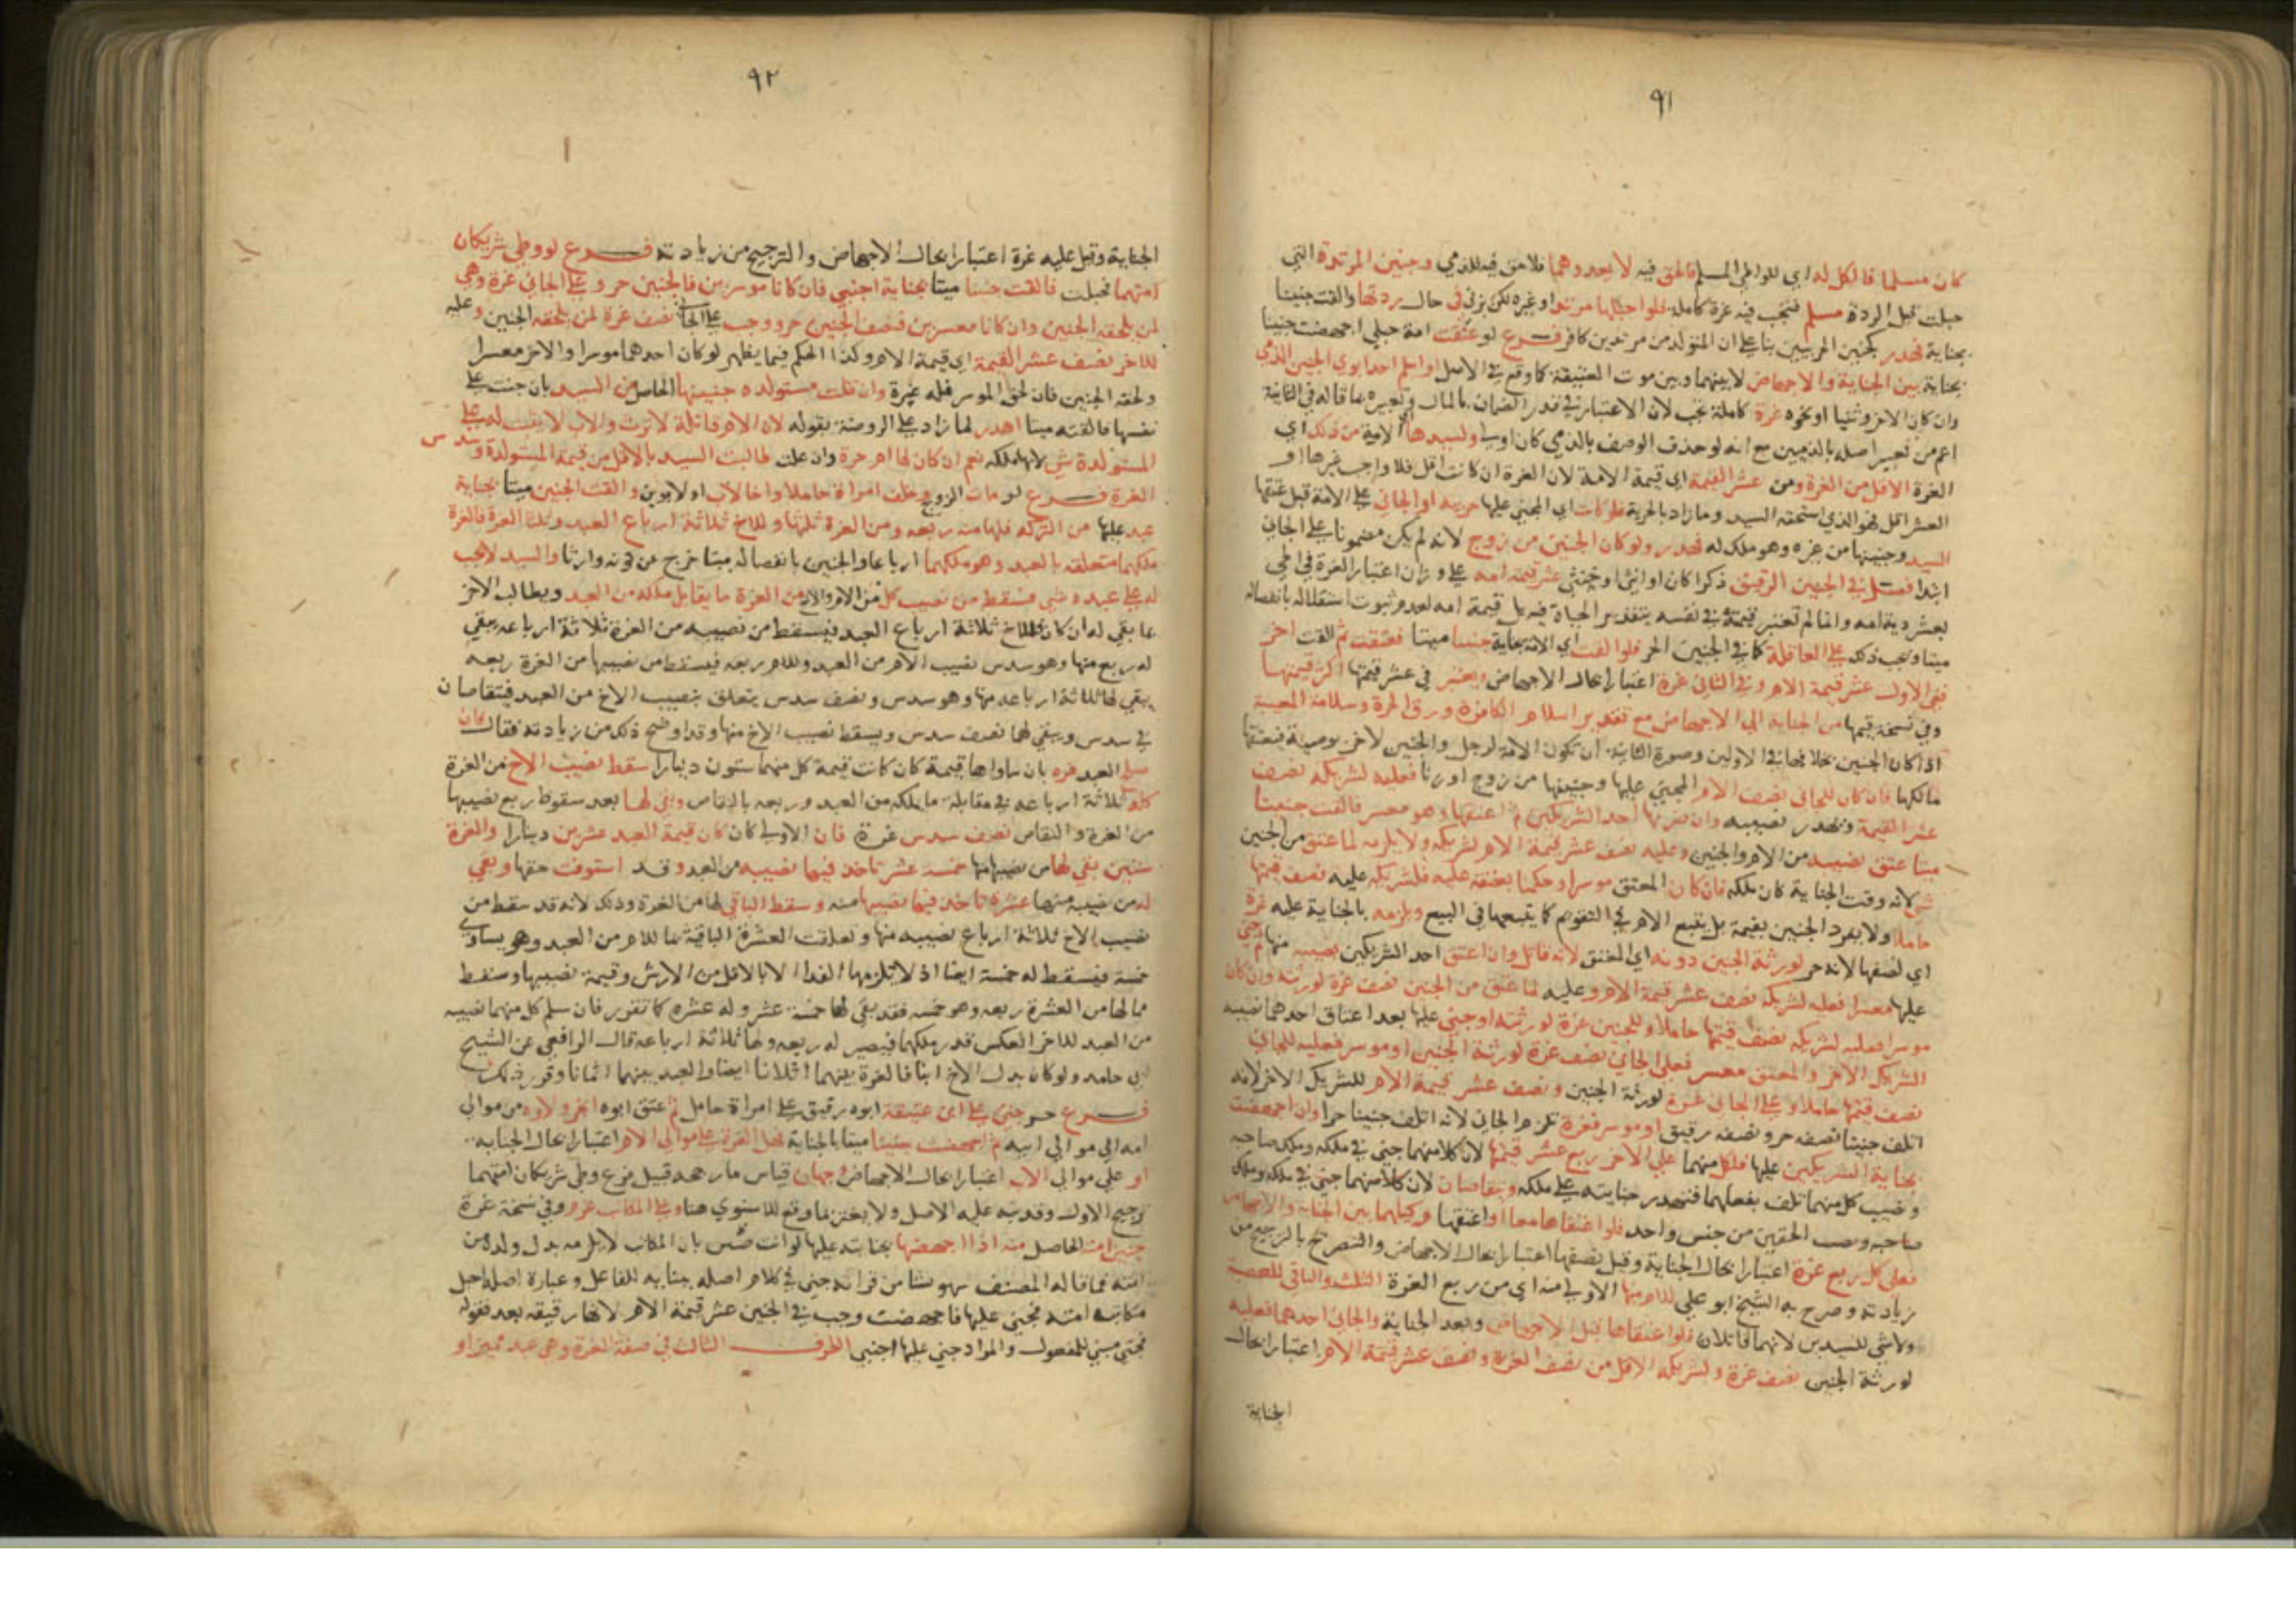 ٩١
كان مسلما فالكل له اي للواطي المسلم فالحق فيه لا يعدوهما فلا حق فيه للذمي وجنين المرتدة التي
حبلت قبل الردة مسلم فتجب فيه غرة كاملة فلو احبلها مرتد او غيره لكن بزنى في حال ردتها والقت جنينا
بجناية فهدر كجنين الحربيين بناء على ان المتولد من مرتدين كافر فرع لو عتقت امة حبلى اجهضت جنينا
بجناية بين الجناية والاجهاض لا بينهما وبين موت العتيقة كما وقع في الاصل او اسلم احد ابوي الجنين الذمي
وان كان الاخر وثنيا او نحوه غرة كاملة تجب لان الاعتبار في قدر الضمان بالمال وتعبيره بما قاله في الثانية
اعم من تعبير اصله بالذميين مع انه لو حذف الوصف بالذمي كان اولى ولسيدها اي الامة من ذلك اي
الغرة الاقل من الغرة ومن عشر القيمة اي قيمة الامة لان الغرة ان كانت اقل فلا واجب غيرها او
العشر اقل فهو الذي استحقه السيد وما زاد بالحرية فلو كانت اي المجني عليها حربية او الجاني على الامة قبل عتقها
السيد وجنينها من غيره وهو ملك له فهدر ولو كان الجنين من زوج لانه لم يكن مضمونا على الجاني
ابتدا فصل في الجنين الرقيق ذكرا كان او انثى او خنثى عشر قيمة امه على وزان اعتبار الغرة في الحر
بعشر دية امه وانما لم تعتبر قيمته في نفسه بتقدير الحياة فيه بل قيمة امه لعدم ثبوت استقلاله بانفصاله
ميتا وتجب ذلك على العاقلة كما في الجنين الحر فلو القت اي الامة بجناية جنينا ميتا فعتقت ثم القت اخر
ففي الاول عشر قيمة الام وفي الثاني غرة اعتبارا بحال الاجهاض ويعتبر في عشر قيمتها اكثر قيمتها
وفي نسخة قيمها من الجناية الى الاجهاض مع تقدير اسلام الكافرة ورق الحرة وسلامة المعيبة
اذا كان الجنين بخلافها في الاولين وصورة الثانية ان تكون الامة لرجل والجنين لاخر بوصية فيعتقها
مالكها فان كان للجاني نصف الام المجني عليها وجنينها من زوج او زنا فعليه لشريكه نصف
عشر القيمة ويهدر نصيبه وان ضربها احد الشريكين ثم اعتقها وهو معسر فالقت جنينا
ميتا عتق نصيبه من الام والجنين وعليه نصف عشر قيمة الام لشريكه ولا يلزمه لما عتق من الجنين
شي لانه وقت الجناية كان ملكه فان كان المعتق موسرا وحكمنا بعتقه عليه فلشريكه عليه نصف قيمتها
حاملا ولا يفرد الجنين بقيمة بل يتبع الام في التقويم كما يتبعها في البيع ويلزمه بالجناية عليه غرة
اي لنصفها لانه حر لورثة الجنين دونه اي المعتق لانه قاتل وان اعتق احد الشريكين نصيبه منها ثم جنى
عليها معسرا فعليه لشريكه نصف عشر قيمة الام وعليه لما عتق من الجنين نصف غرة لورثته وان كان
موسرا فعليه لشريكه نصف قيمتها حاملا وللجنين غرة لورثته او جنى عليها بعد اعتاق احدهما نصيبه
الشريك الاخر والمعتق معسر فعلى الجاني نصف غرة لورثة الجنين او موسر فعليه للجاني
نصف قيمتها حاملا وعلى الجاني غرة لورثة الجنين ونصف عشر قيمة الام للشريك الاخر لانه
اتلف جنينا نصفه حر ونصفه رقيق او موسر فغرة تلزم الجاني لانه اتلف جنينا حرا وان اجهضت
بجناية الشريكين عليها فلكل منهما على الاخر ربع عشر قيمتها لان كلا منهما جنى في ملكه وملك صاحبه
ونصيب كل منهما تلف بفعلهما فتهدر جنايته على ملكه ويتقاصان لان كلا منهما جنى في ملكه وملك
صاحبه الحقين من جنس واحد فلو اعتقاها معا او اعتقها وكيلهما بين الجناية والاجهاض
فعلى كل ربع غرة اعتبارا بحال الجناية وقيل نصفها اعتبارا بحال الاجهاض والتصريح بالترجيح من
زيادته وصرح به الشيخ ابو علي للام منها الاولى منه اي من ربع الغرة الثلث والباقي للعصبة
ولا شي للسيدين لانهما قاتلان فلو اعتقاها قبل الاجهاض وبعد الجناية والجاني احدهما فعليه
لورثة الجنين نصف غرة ولشريكه الاقل من نصف الغرة ونصف عشر قيمة الام اعتبارا بحال
الجناية
٩٢
الجناية وقيل عليه غرة اعتبارا بحال الاجهاض والترجيح من زيادته فرع لو وطي شريكان
امتهما فحبلت فالقت جنينا ميتا بجناية اجنبي فان كانا موسرين فالجنين حر وعلى الجاني غرة وهي
لمن يلحقه الجنين وان كانا معسرين فنصف الجنين حر ووجب على الجاني نصف غرة لمن يلحقه الجنين وعليه
للاخر نصف عشر القيمة اي قيمة الام وكذا الحكم فيما يظهر لو كان احدهما موسرا والاخر معسرا
ولحقه الجنين فان لحق الموسر فله غرة وان قتلت مستولدة جنينها الحاصل من السيد بان جنت على
نفسها فالقته ميتا اهدر لما زاده على الروضة بقوله لان الام قاتلة لا ترث والاب لا يثبت له على
المستولدة شي لانها ملكه نعم ان كان لها ام حرة وان علت طالبت السيد بالاقل من قيمة المستولدة وسدس
الغرة فرع لو مات الزوج وخلف امراة حاملا واخا لاب او لابوين والقت الجنين ميتا بجناية
عبد عليها من التركة فلها منه ربعه ومن الغرة ثلثها وللاخ ثلاثة ارباع العبد وثلثا الغرة فالغرة
ملكهما متعلقة بالعبد وهو ملكهما ارباعا والجنين بانفصاله ميتا خرج عن كونه وارثا والسيد لا يجب
له على عبده شي فيسقط من نصيب كل من الام والاخ من الغرة ما يقابل ملكه من العبد ويطالب الاخر
بما بقي له ان كان للاخ ثلاثة ارباع العبد فيسقط من نصيبه من الغرة ثلاثة ارباعه يبقى
له ربع منها وهو سدس نصيب الام من العبد وللام ربعه فيسقط من نصيبها من الغرة ربعه
يبقى لها ثلاثة ارباعه منها وهو سدس ونصف سدس يتعلق بنصيب الاخ من العبد فيتقاصان
في سدس ويبقى لها نصف سدس ويسقط نصيب الاخ منها وقد اوضح ذلك من زيادته فقال فان
سلم العبد غره بان ساواها قيمة كان كانت قيمة كل منهما ستون دينارا سقط نصيب الاخ من الغرة
كله ثلاثة ارباعه في مقابلة ما يملكه من العبد وربعه بالتقاص وبقي لها بعد سقوط ربع نصيبها
من الغرة والتقاص نصف سدس غرة فان الاولى كان كان قيمة العبد عشرين دينارا والغرة
ستين بقي لها من نصيبها منها خمسة عشر تاخذ فيها نصيبه من العبد وقد استوفت حقها وبقي
له من نصيبه منها عشرة تاخذ فيها نصيبها منه وسقط الباقي لها من الغرة وذلك لانه قد سقط من
نصيب الاخ ثلاثة ارباع نصيبه منها وتعلقت العشرة الباقية بما للام من العبد وهو يساوي
خمسة فيسقط له خمسة ايضا اذ لا يلزمها الفدا الا بالاقل من الارش وقيمة نصيبها وسقط
مما لها من العشرة ربعه وهو خمسة فقد بقي لها خمسة عشر وله عشرة كما تقرر فان سلم كل منهما نصيبه
من العبد للاخر انعكس قدر ملكهما فيصير له ربعه ولها ثلاثة ارباعه قال الرافعي عن الشيخ
ابي حامد ولو كان بدل الاخ ابنا فالغرة بينهما اثلاثا ايضا والعبد بينهما اثمانا وقرر ذلك
فرع حر جنى على ابن عتيقة ابوه رقيق على امراة حامل ثم اعتق ابوه انجر ولاوه من موالي
امه الى موالي ابيه ثم اجهضت جنينا ميتا بالجناية فهل الغرة على موالي الام اعتبارا بحال الجناية
او على موالي الاب اعتبارا بحال الاجهاض وجهان قياس ما رجحه قبيل فرع وطي شريكان امتهما
ترجيح الاول وقد نبه عليه الاصل ولا يغتر بما وقع للاسنوي هنا وعلى المكاتب غرم وفي نسخة غرة
جنين امته الحاصل منه اذا اجهضها بجنايته عليها لو انت بان المكاتب لا يلزمه بدل ولده من
امته فما قاله المصنف سهو نشا من قراته جنى في كلام اصله ببنايه للفاعل وعبارة اصله احبل
مكاتب امته فجني عليها فاجهضت وجب في الجنين عشر قيمة الام لانها رقيقه بعد فقوله
فجني مبني للمفعول والمراد جنى عليها اجنبي الطرف الثالث في صفة الغرة وهي عبد مميز او